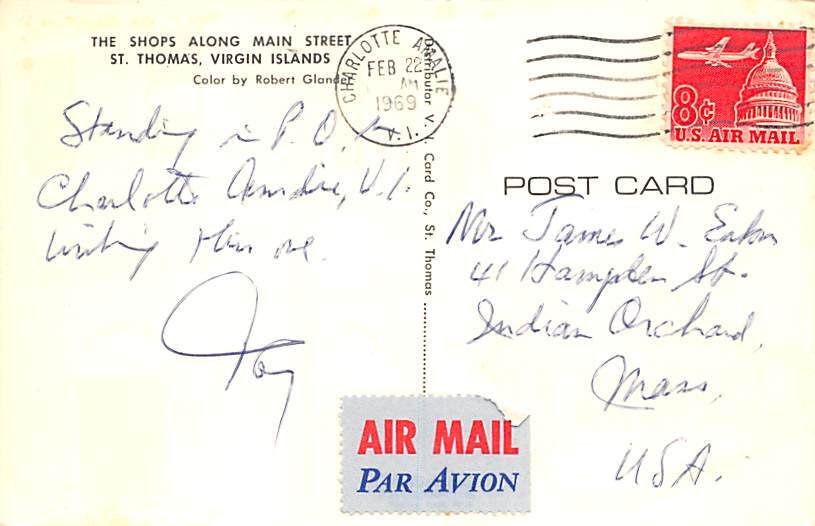 THE SHOPS ALONG MAIN STREET
ST. THOMAS, VIRGIN ISLANDS
Color by Robert
Standing in P.O. in
Charlotte Amalie, V.I.
writing this one.
CHARLOTTE AMALIE
FEB 22
AM
1969
V.I.
Distributor V. I. Card Co., St. Thomas
8¢
U.S. AIR MAIL
POST CARD
Mr James W. Eaton
41 Hampden St.
Indian Orchard,
Mass,
USA.
AIR MAIL
PAR AVION